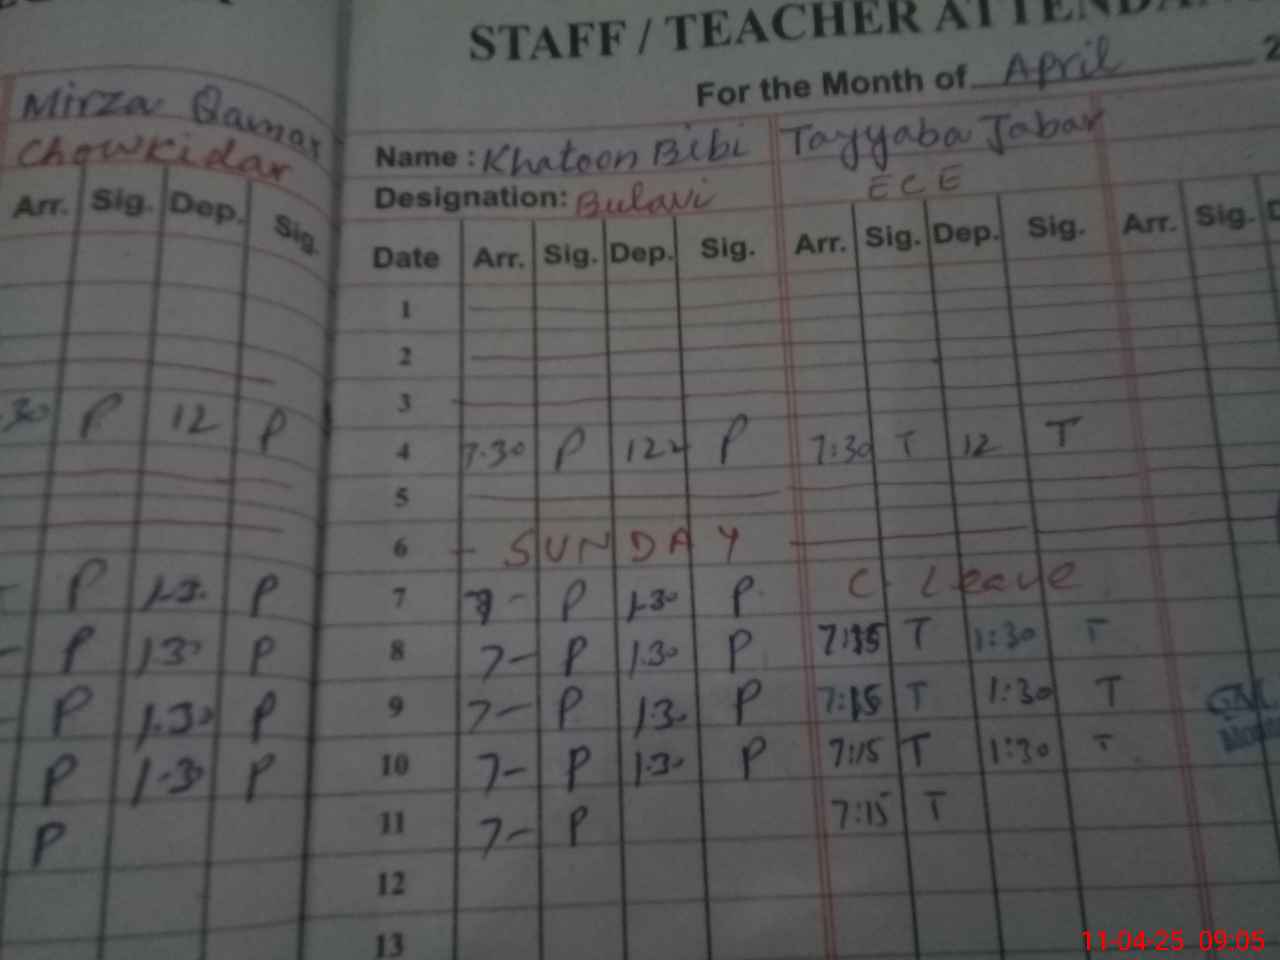 STAFF / TEACHER ATTENDA
For the Month of April 2
Mirza Qamar
Chowkidar
Arr. Sig. Dep. Sig.
30 P 12 P
P 1.30 P
P 130 P
P 1.30 P
P 1.30 P
P
Name : Khatoon Bibi Tayyaba Jabar
Designation: Bulavi ECE
Date Arr. Sig. Dep. Sig. Arr. Sig. Dep. Sig. Arr. Sig. D
1
2
3
4 7.30 P 12 P 7:30 T 12 T
5
6 SUNDAY
7 7- P 1.30 P C. Leave
8 7- P 1.30 P 7:15 T 1:30 T
9 7- P 1.30 P 7:15 T 1:30 T
10 7- P 1.30 P 7:15 T 1:30 T
11 7- P 7:15 T
12
13
11-04-25 09:05